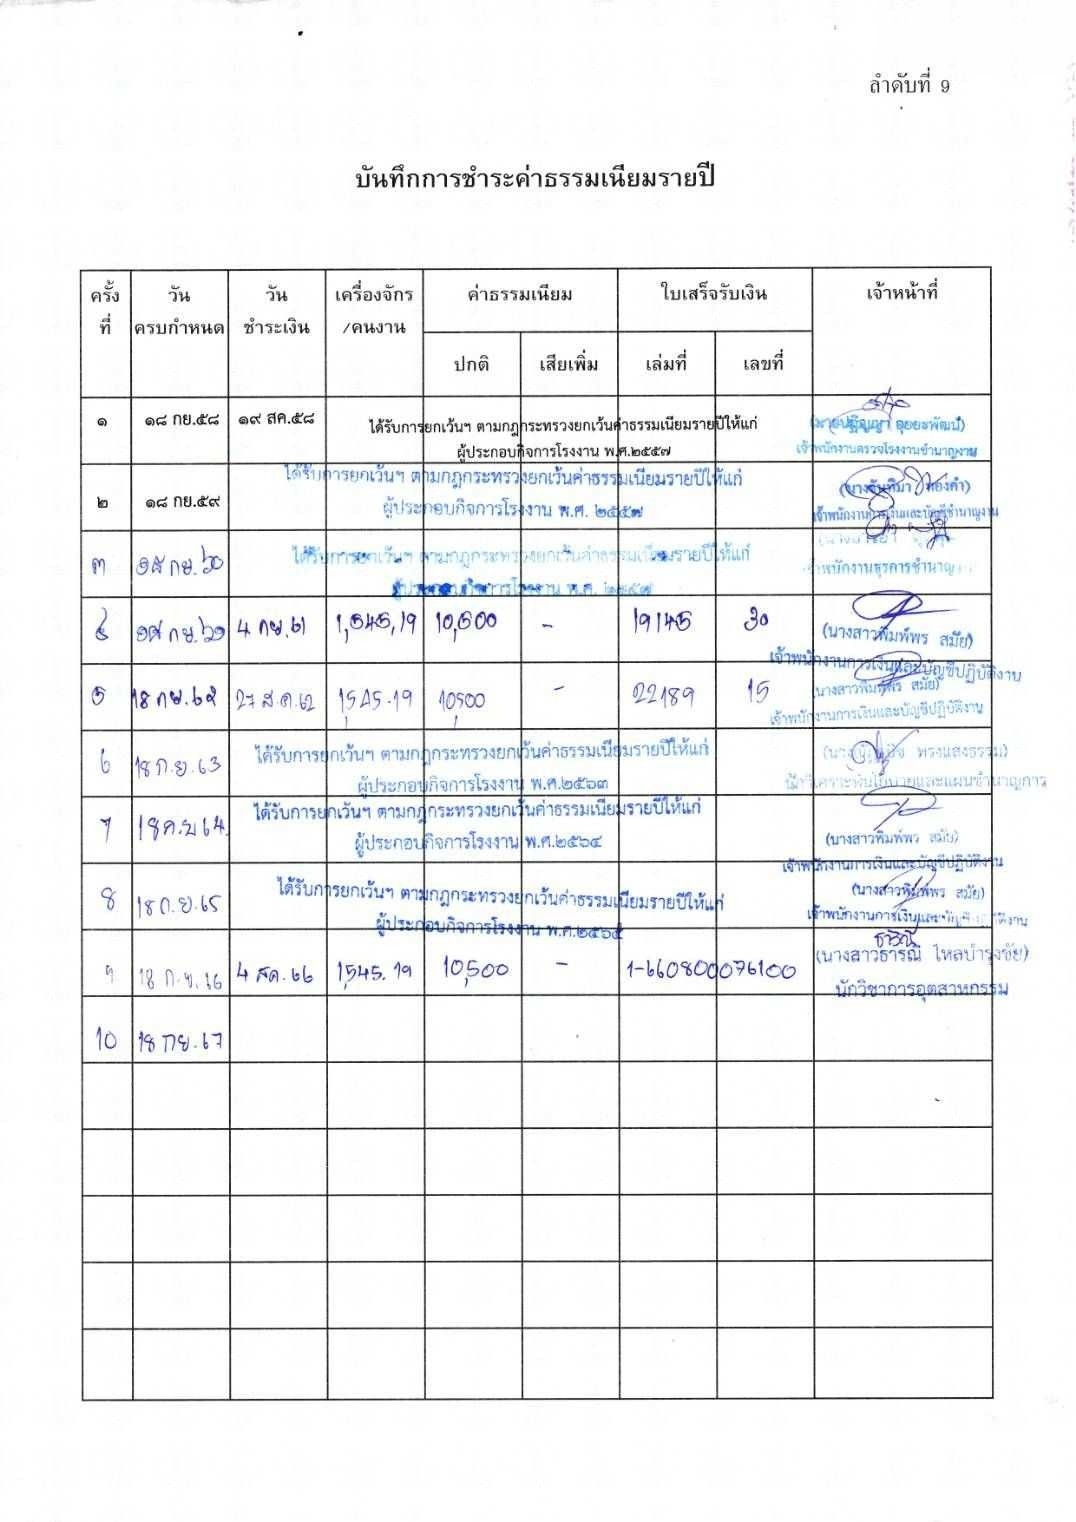 ลำดับที่ 9
บันทึกการชำระค่าธรรมเนียมรายปี
ครั้งที่ วันครบกำหนด วันชำระเงิน เครื่องจักร/คนงาน ค่าธรรมเนียม ใบเสร็จรับเงิน เจ้าหน้าที่
ปกติ เสียเพิ่ม เล่มที่ เลขที่
๑ ๑๘ กย.๕๘ ๑๙ สค.๕๘ ได้รับการยกเว้นฯ ตามกฎกระทรวงยกเว้นค่าธรรมเนียมรายปีให้แก่
ผู้ประกอบกิจการโรงงาน พ.ศ.๒๕๕๗ เจ้าพนักงานตรวจโรงงานชำนาญงาน
ได้รับการยกเว้นฯ ตามกฎกระทรวงยกเว้นค่าธรรมเนียมรายปีให้แก่
๒ ๑๘ กย.๕๙ ผู้ประกอบกิจการโรงงาน พ.ศ. ๒๕๕๗ (นางจันทิมา ทองคำ)
เจ้าพนักงานการเงินและบัญชีชำนาญงาน
๓ ๑๘ กย.๖๐ ได้รับการยกเว้นฯ ตามกฎกระทรวงยกเว้นค่าธรรมเนียมรายปีให้แก่
ผู้ประกอบกิจการโรงงาน พ.ศ. ๒๕๕๗ เจ้าพนักงานธุรการชำนาญ
๔ ๑๘ กย.๖๑ 4 กย.61 1,545.19 10,500 – 19145 30 (นางสาวพิมพ์พร สมัย)
เจ้าพนักงานการเงินและบัญชีปฏิบัติงาน
5 18 กย.62 27 ส.ค.62 1,545.19 10,500 – 22189 15 (นางสาวพิมพ์พร สมัย)
เจ้าพนักงานการเงินและบัญชีปฏิบัติงาน
6 18 ก.ย.63 ได้รับการยกเว้นฯ ตามกฎกระทรวงยกเว้นค่าธรรมเนียมรายปีให้แก่ ทรงแสงธรรม)
ผู้ประกอบกิจการโรงงาน พ.ศ.๒๕๖๓ นักวิเคราะห์นโยบายและแผนชำนาญการ
7 18 ก.ย 64 ได้รับการยกเว้นฯ ตามกฎกระทรวงยกเว้นค่าธรรมเนียมรายปีให้แก่
ผู้ประกอบกิจการโรงงาน พ.ศ.๒๕๖๔ (นางสาวพิมพ์พร สมัย)
เจ้าพนักงานการเงินและบัญชีปฏิบัติงาน
8 18 ก.ย.65 ได้รับการยกเว้นฯ ตามกฎกระทรวงยกเว้นค่าธรรมเนียมรายปีให้แก่ (นางสาวพิมพ์พร สมัย)
ผู้ประกอบกิจการโรงงาน พ.ศ.๒๕๖๕ เจ้าพนักงานการเงินและบัญชีปฏิบัติงาน
9 18 ก.ย.66 4 สค.66 1,545.19 10,500 – 1-660800076100 ธารณี
(นางสาวธารณี ไหลบำรุงชัย)
นักวิชาการอุตสาหกรรม
10 18 กย.67